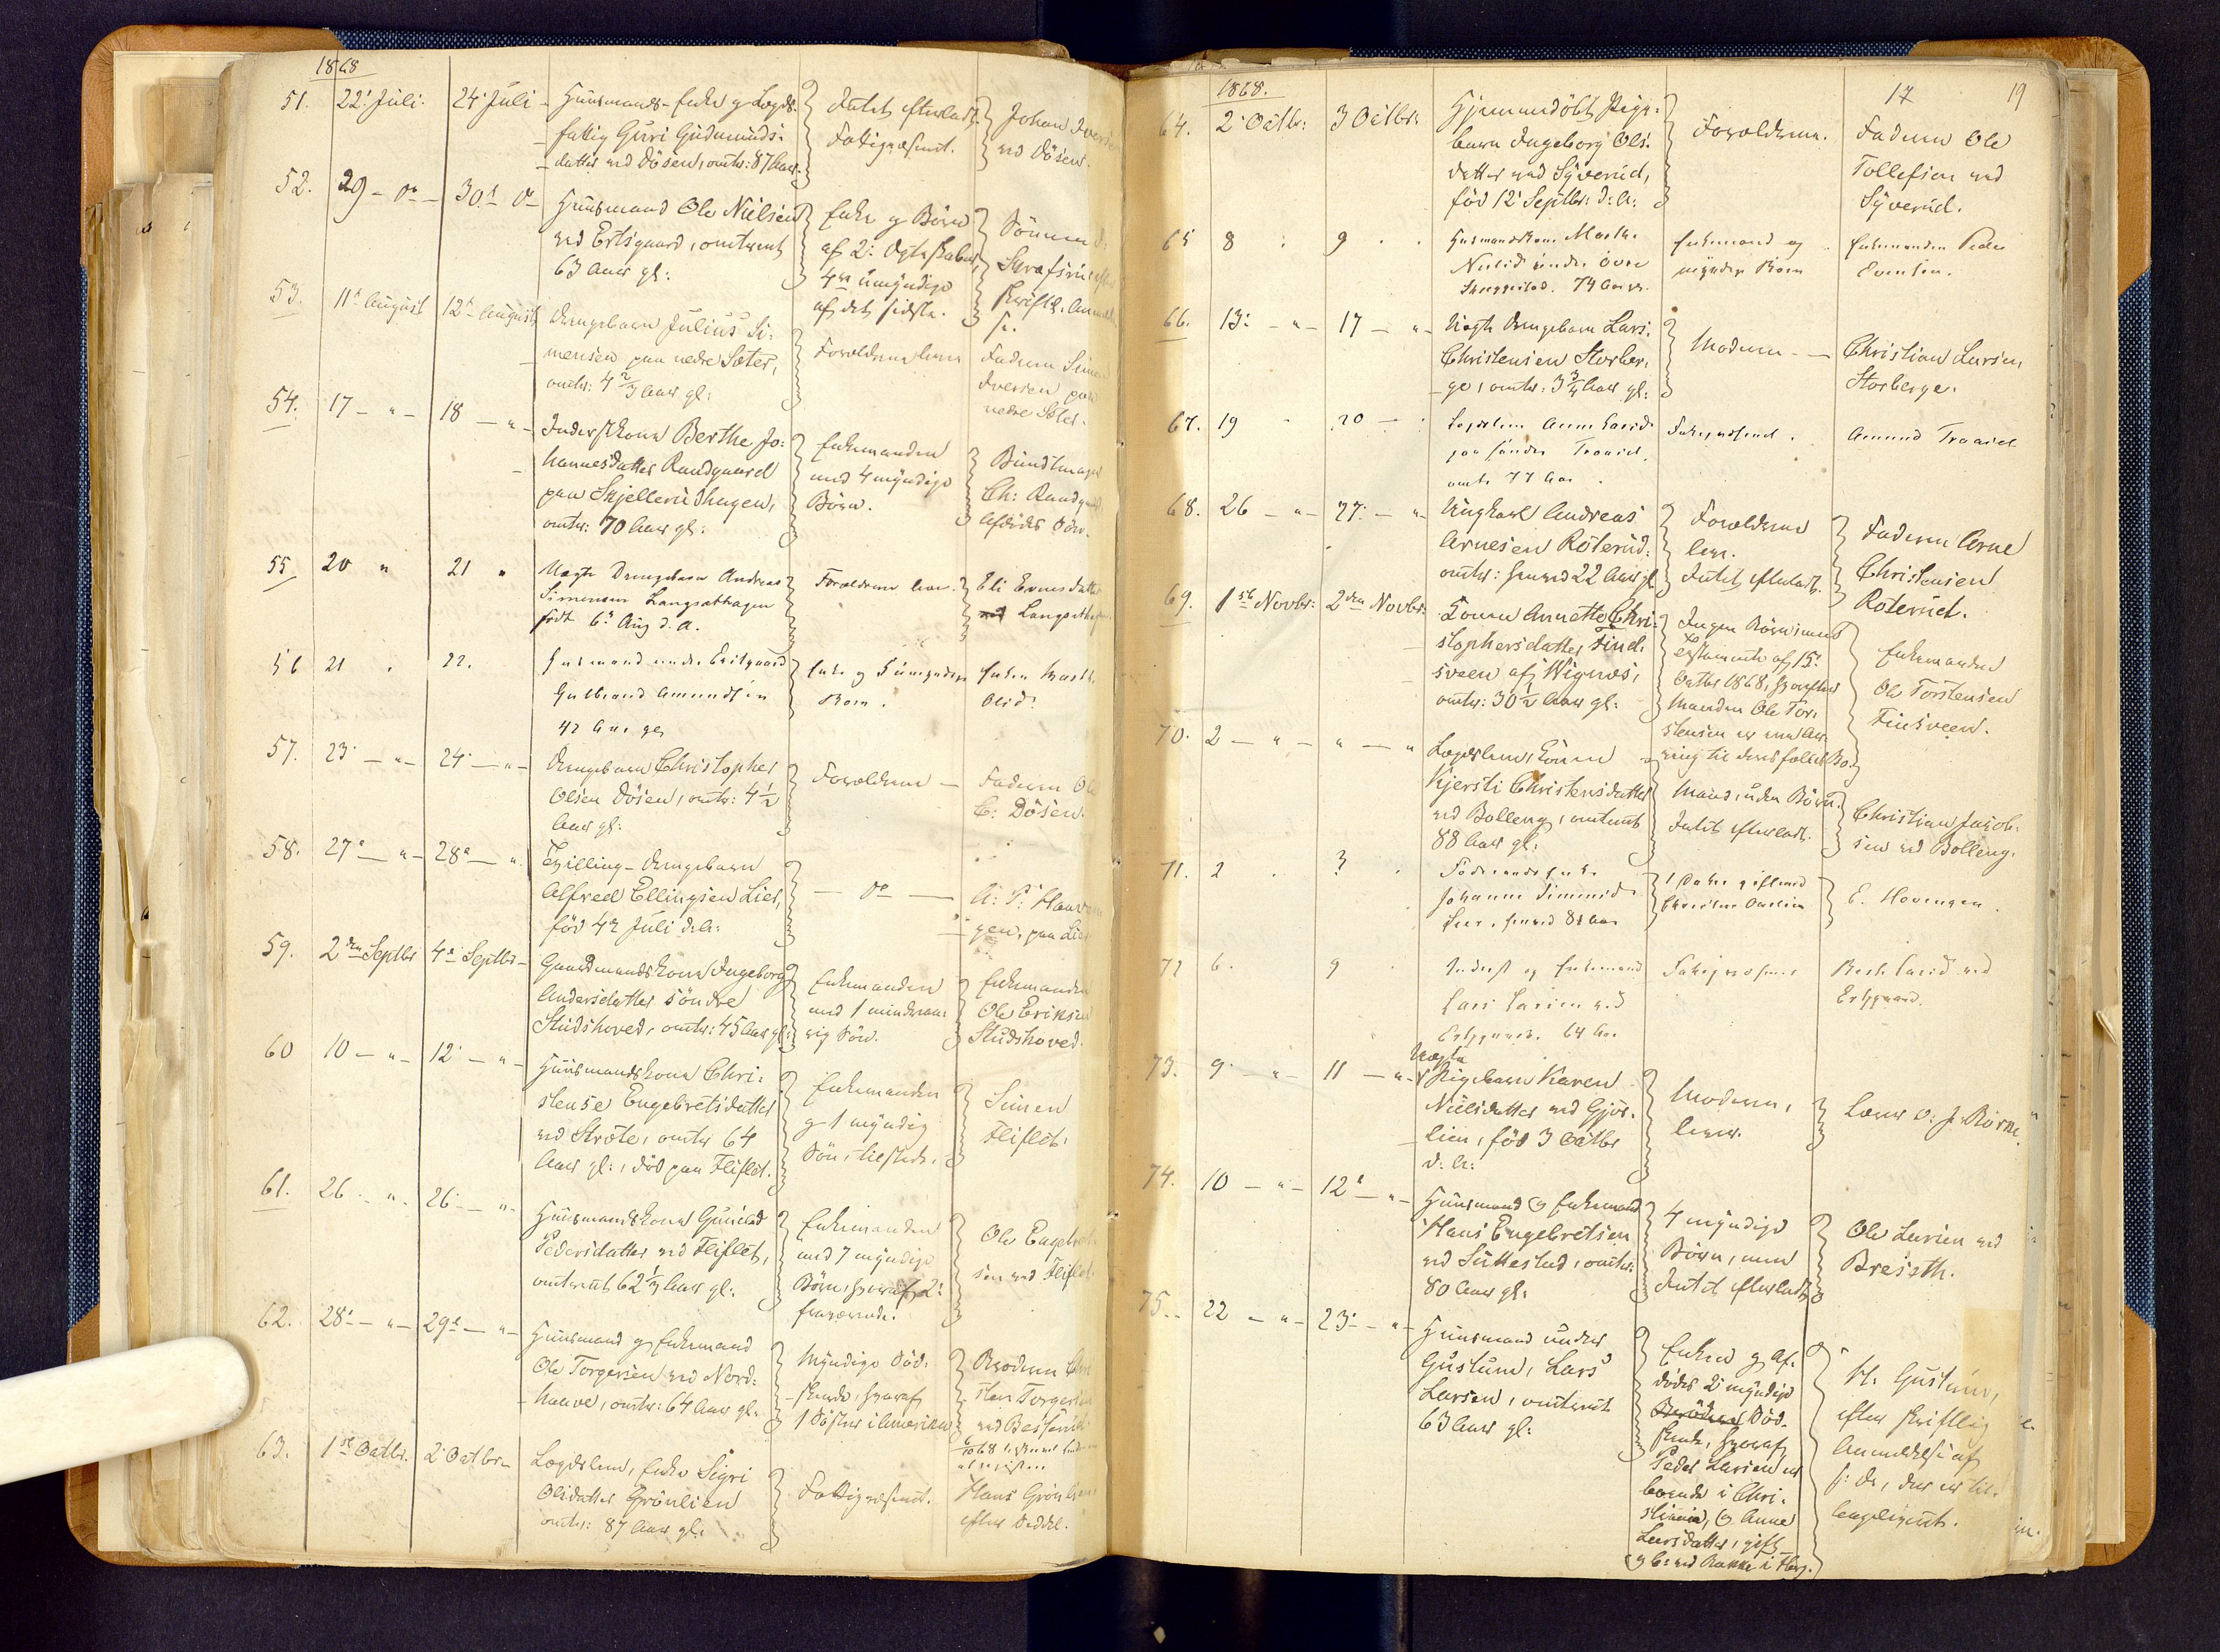 1868
51. 22: Juli. 24: Juli Huusmands-Enke og Lægds-
fattig Guri Gudmunds-
datter ved Dösen, omtr: 87 Aar.
Intet efterladt.
Fattigvæsenet.
Johan Iversen
ved Dösen.
52. 29 - do - 30: do Huusmand Ole Nielsen
ved Ertsgaard, omtrent
63 Aar gl:
Enke og Börn
af 2: Ægteskaber,
4re umyndige
af det sidste.
Sönnen
skriftl. Anmeldel-
se.
53. 11: August 12: August Drengebarn Julius Si-
mensen paa nedre Sæter,
omtr: 4 2/3 Aar gl:
Forældrene leve
Faderen Simen
Iversen paa
nedre Sæter.
54. 17 - " - 18 - " - Inderstkone Berthe Jo-
hannesdatter Randgaard
paa Skjellerudhagen,
omtr: 70 Aar gl:
Enkemanden
med 4 myndige
Börn.
Bundtmager
Ch: Randgaard
Afdödes Sön.
55 20 " 21 " Uægte Drengebarn Andreas
Simensen Langsethagen
född 6: Aug d. A.
Forældrene leve.
Eli Evensdatter
ved Langsethagen
56 21 . 22. Husmand under Ertsgaard
Gulbrand Amundsen
42 Aar gl
Enke og 5 umyndige
Born.
Enken Marthe
Olsd:
57. 23: - " - 24: - " - Drengebarn Christopher
Olsen Dösen, omtr: 4 1/2
Aar gl:
Forældrene -
Faderen Ole
C: Dösen.
58. 27: - " - 28: - " Tvilling-Drengebarn
Alfred Ellingsen Lier,
föd 4: Juli d: A:
- do -
A: P: Haave
gen, paa Lier
59. 2den Septbr 4: Septbr - Gaardmandskone Ingeborg
Andersdatter söndre
Studshoved, omtr: 45 Aar gl:
Enkemanden
med 1 mindreaa-
rig Sön.
Enkemanden
Ole Eriksen
Studshoved.
60 10 - " - 12: - " - Huusmandskone Chri-
stense Engebretsdatter
ved Ströte, omtr 64
Aar gl:, död paa Fliflet.
Enkemanden
og 1 myndig
Sön, tilstede.
Simen
Fliflet.
61. 26 - " - 26: - " - Huusmandskone Gunild
Pedersdatter ved Fliflet,
omtrent 62 1/3 Aar gl:
Enkemanden
med 7 myndige
Börn, hvoraf 2:
fraværende.
Ole Engebret-
sen ved Fliflet.
62. 28: - " - 29: - " - Huusmand og Enkemand
Ole Torgersen ved Nord-
haave, omtr: 64 Aar gl:
Myndige Söd-
skende, hvoraf
1 Söster i Amerika
Broderen Chri-
sten Torgersen
ved Besserud
63. 1ste Octbr. 2 Octbr - Lægdslem, Enke Sigri
Olsdatter Grönlien
omtr: 87 Aar gl:
Fattigvæsenet.
Hans Grönlien
efter Seddel.
1868. 17 19
64. 2: Octbr: 3 Octbr: Hjemmedöbt Pige-
barn Ingeborg Ols-
datter ved Syverud,
föd 12: Septbr: d: A:
Forældrene.
Faderen Ole
Tollefsen ved
Syverud.
65 8 : 9 . . Husmandskone Marthe
Nielsd under övre
Skoggestad. 74 Aar.
Enkemand og
myndige Born
Enkemanden Peder
Evensen.
66. 13: - " - 17 - " - Uægte Drengebarn Lars
Christensen Storber-
ge, omtr: 3 3/4 Aar gl:
Moderen -
Christian Larsen
Storberge.
67. 19 - 20 - : Lægdslem Anne Larsd
paa söndre Traaset
omtr 77 Aar.
Fattigvæsenet.
Amund Traaset
68. 26 - " - 27: - " - Ungkarl Andreas
Arnesen Röterud.
omtr: henved 22 Aar gl
Forældrene
leve.
Intet efterladt.
Faderen Arne
Christensen
Röterud.
69. 1ste Novbr: 2den Novbr: Konen Annette Chri-
stophersdatter Find-
sveen af Wignæs,
omtr: 30 1/2 Aar gl:
Ingen Börn; men
Testamente af 15:
Octbr 1868, hvorefter
Manden Ole Tor-
stensen er enearv-
ing til deres fælles Bo.
Enkemanden
Ole Torstensen
Finsveen.
70. 2 - " - " - " Lægdslem, Konen
Kjersti Christensdatter
ved Bolleng, omtrent
88 Aar gl:
Mand, uden Börn.
Intet efterladt.
Christian Jacob-
sen ved Bolleng.
71. 2 . 3 . Födraadsenke
Johanne Simensd
Lier, henved 81 Aar
1 Datter gift med
E. Hovengen.
72 6. 9 Inderst og Enkemand
Lars Larsen ved
Ertsgaard. 64 Aar
Fattigvæsenet
Berthe Larsd ved
Ertsgaard.
73. 9: - " - 11 - " - Uægte
Pigebarn Karen
Nielsdatter ved Gjös-
lien, föd 3 Octbr
d: A:
Moderen,
lever.
Lærer O: J. Börke.
74. 10 - " - 12: - " - Huusmand og Enkemand
Hans Engebretsen
ved Suttestad, omtr:
80 Aar gl:
4 myndige
Börn, men
Intet efterladt
Ole Larsen ved
Breseth.
75. - 22 - " - 23: - " - Huusmand under
Gustum, Lars
Larsen, omtrent
63 Aar gl:
Enken og af-
dödes 2: myndige
Brödre Söd-
skende, hvoraf
Peder Larsen er
boende i Chri-
stiania, og Anne
Larsdatter, gift
og b: ved Bakke i
H. Gustum,
efter skriftlig
Anmeldelse af
s: d:, der er til-